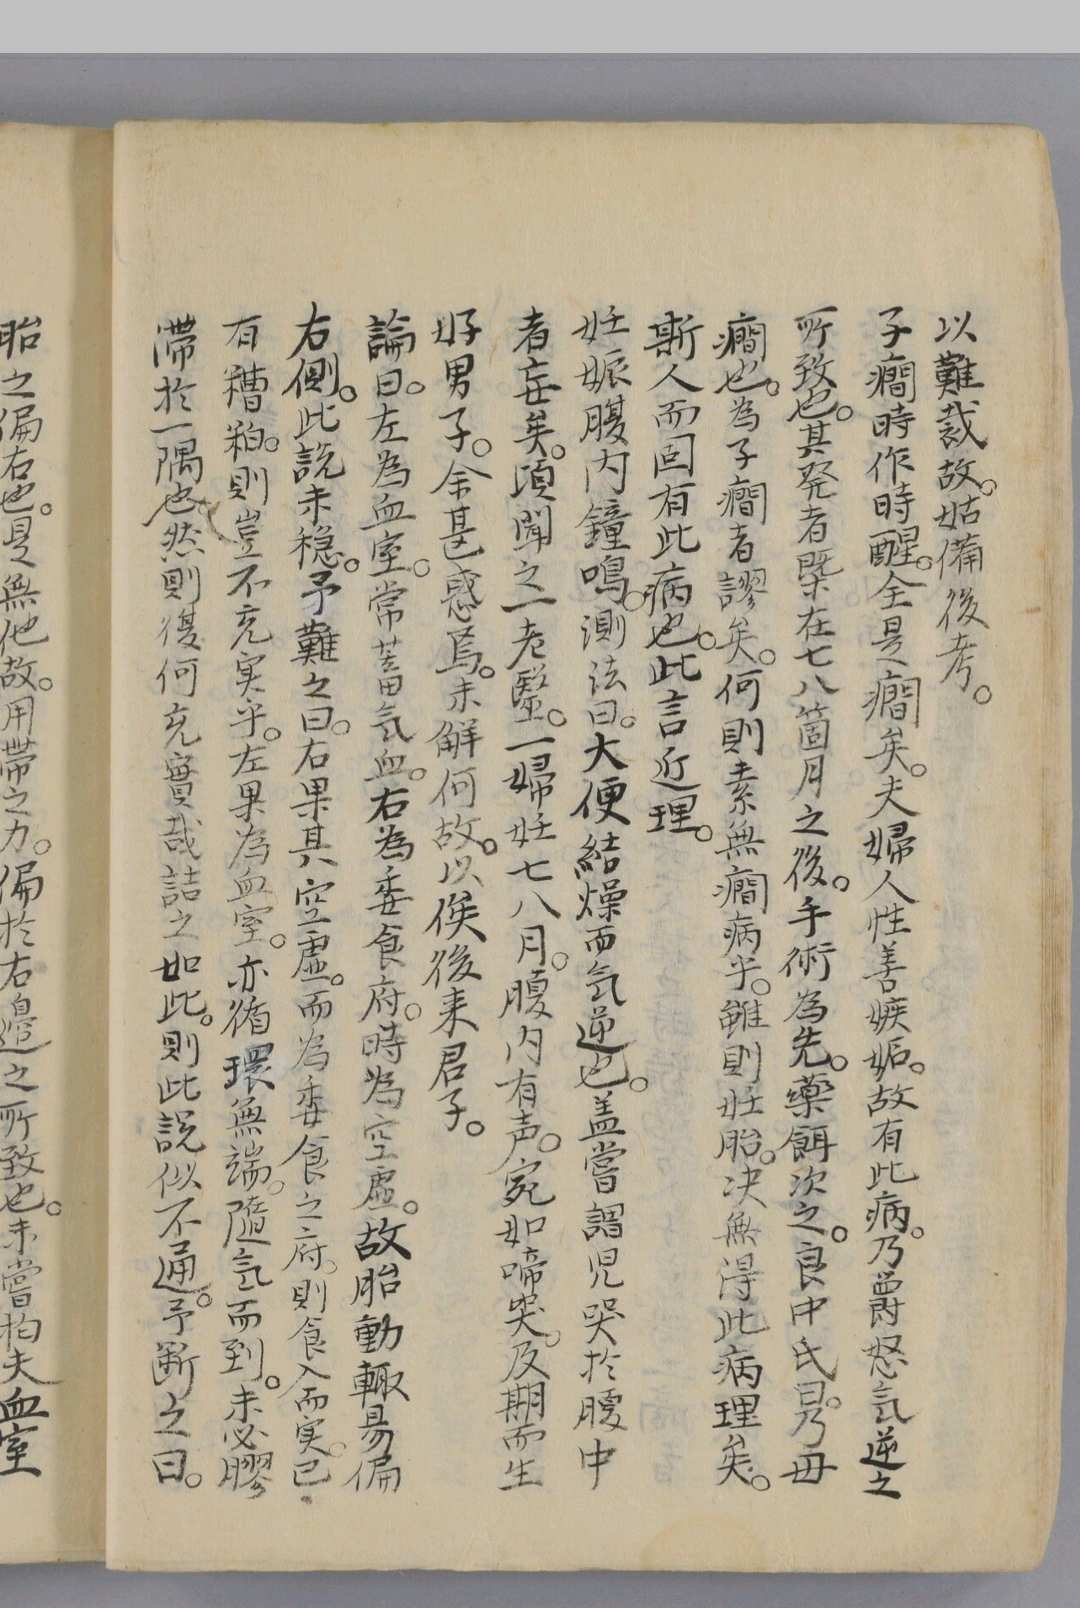 以難裁故。姑備後考。
子癇時作時醒。全是癇矣。夫婦人性善嫉妬。故有此病。乃爵怒気逆之
所致也。其発者槩在七八箇月之後。手術為先。藥餌次之。良中氏曰。乃毋
癇也。為子癇者謬矣。何則素無癇病乎。雖則妊胎。决無得此病理矣。
斯人而固有此病也。此言近理。
妊娠腹内鐘鳴。測法曰。大便結燥而気逆也。盖嘗謂児哭於腹中
者妄矣。頃聞之一老醫。一婦妊七八月。腹内有声。宛如啼哭。及期而生
好男子。余甚惑焉。未解何故。以俟後来君子。
論曰。左為血室。常蓄気血。右為委食府。時為空虚。故胎動輙易偏
右側。此説未穏。予難之曰。右果其空虚。而為委食之府。則食入而実。已
有糟粕。則豈不充実乎。左果為血室。亦循環無端。隨気而到。未必膠
滞於一隅也。然則復何充實哉詰之如此。則此説似不通。予断之曰。
胎之偏右也。是無他故。用帶之力。偏於右邉之所致也。未嘗拘夫血室